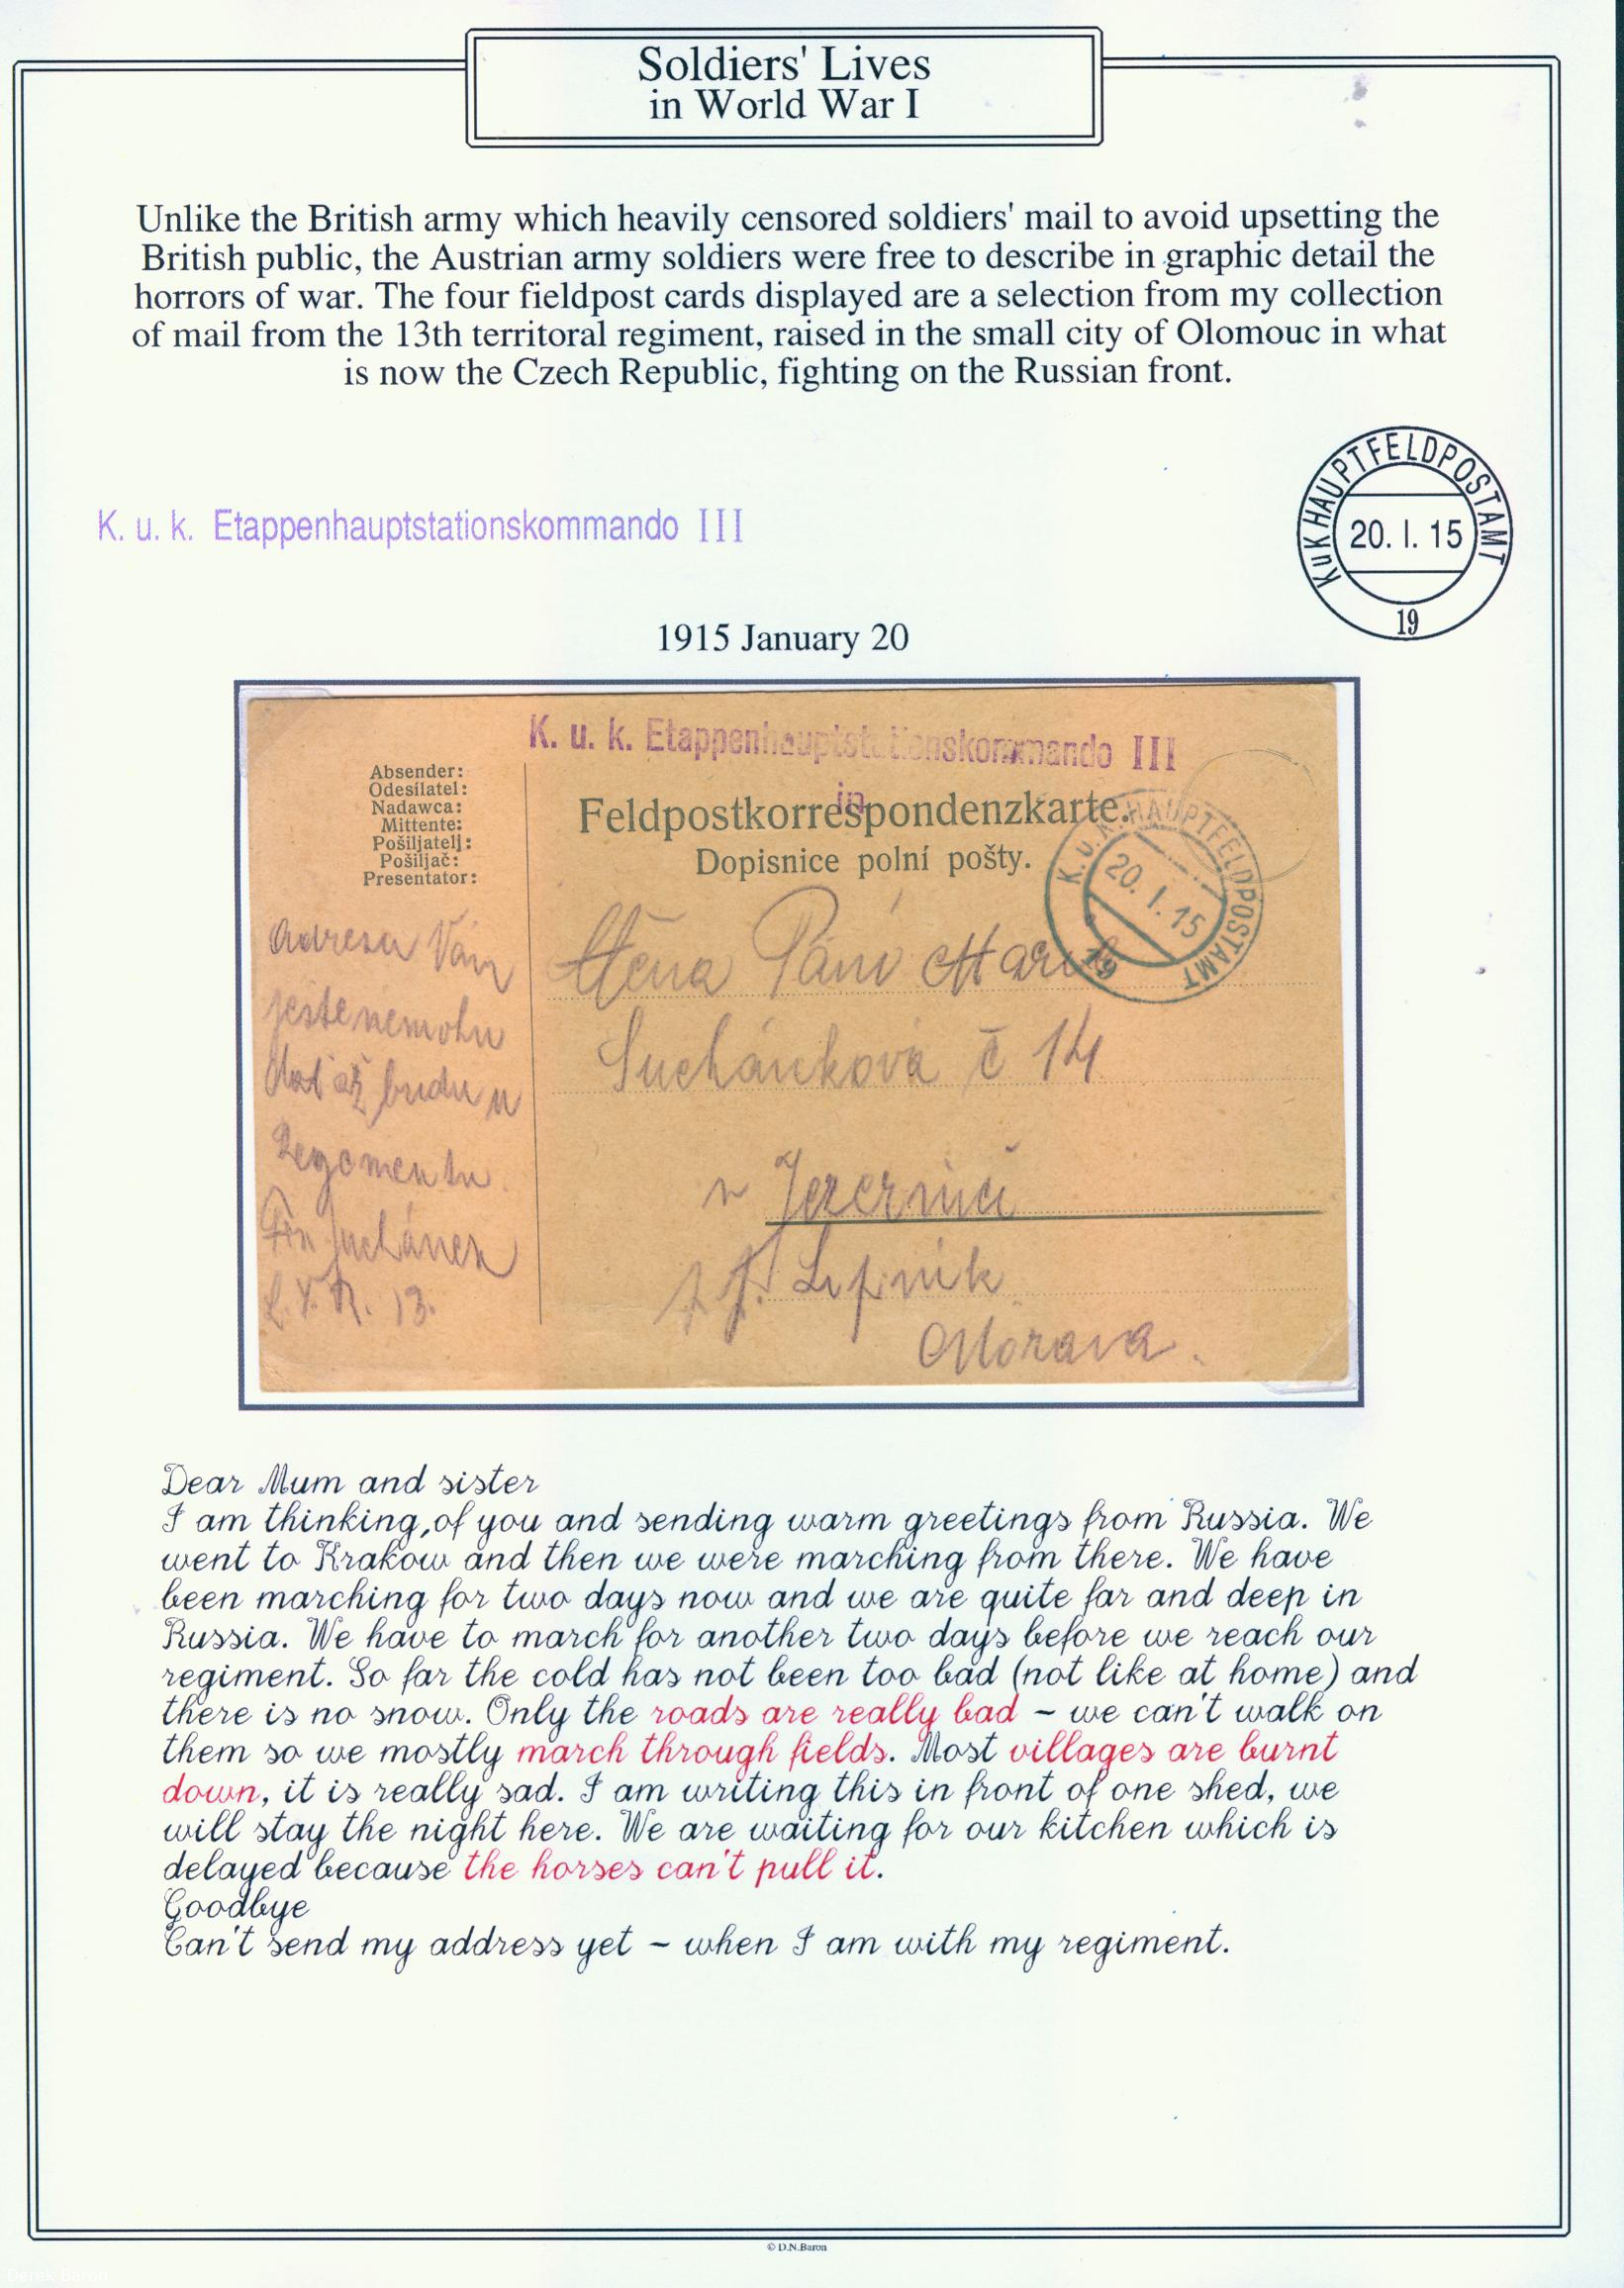 Soldiers' Lives
in World War I
Unlike the British army which heavily censored soldiers' mail to avoid upsetting the
British public, the Austrian army soldiers were free to describe in graphic detail the
horrors of war. The four fieldpost cards displayed are a selection from my collection
of mail from the 13th territoral regiment, raised in the small city of Olomouc in what
is now the Czech Republic, fighting on the Russian front.
KuK HAUPTFELDPOSTAMT
20. I. 15
19
K. u. k. Etappenhauptstationskommando III
1915 January 20
K. u. k. Etappenhauptstationskommando III
in
Absender:
Odesílatel:
Nadawca:
Mittente:
Pošiljatelj:
Pošiljač:
Presentator:
Feldpostkorrespondenzkarte.
Dopisnice polní pošty.
K. u. K. HAUPTFELDPOSTAMT
20. I. 15
19
Adresu Vám
ještě nemohu
dat až budu u
Regementu
Suchánek
L. I. R. 13.
Ctěna Páni Marie
Suchánková č 14
v Jezernici
p. Lipník
Morava.
Dear Mum and sister
I am thinking,of you and sending warm greetings from Russia. We
went to Krakow and then we were marching from there. We have
been marching for two days now and we are quite far and deep in
Russia. We have to march for another two days before we reach our
regiment. So far the cold has not been too bad (not like at home) and
there is no snow. Only the roads are really bad - we can't walk on
them so we mostly march through fields. Most villages are burnt
down, it is really sad. I am writing this in front of one shed, we
will stay the night here. We are waiting for our kitchen which is
delayed because the horses can't pull it.
Goodbye
Can't send my address yet - when I am with my regiment.
© D.N.Baron
Derek Baron